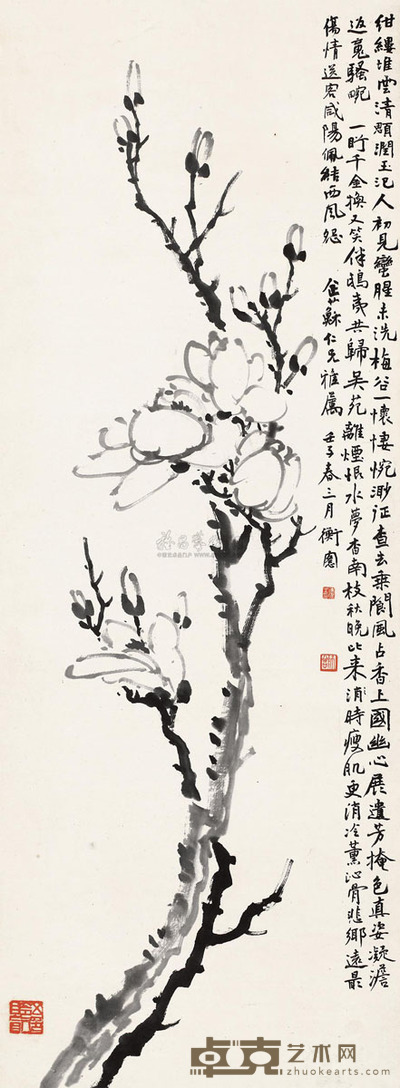 紺縷堆雲清顋潤玉汜人初見蠻腥未洗梅谷一懷悽惋渺征查去乘閬風占香上國幽心展遺芳掩色真姿凝澹
返䰟騷畹 一盻千金換又笑伴鴟夷共歸吳苑離煙恨水夢杳南枝秋晚比來消時瘦肌更消冷薰沁骨悲鄉遠最
傷情送客咸陽佩結西風怨 仁兄雅屬 壬子春三月 衡
卓克艺术网
www.zhuokearts.com